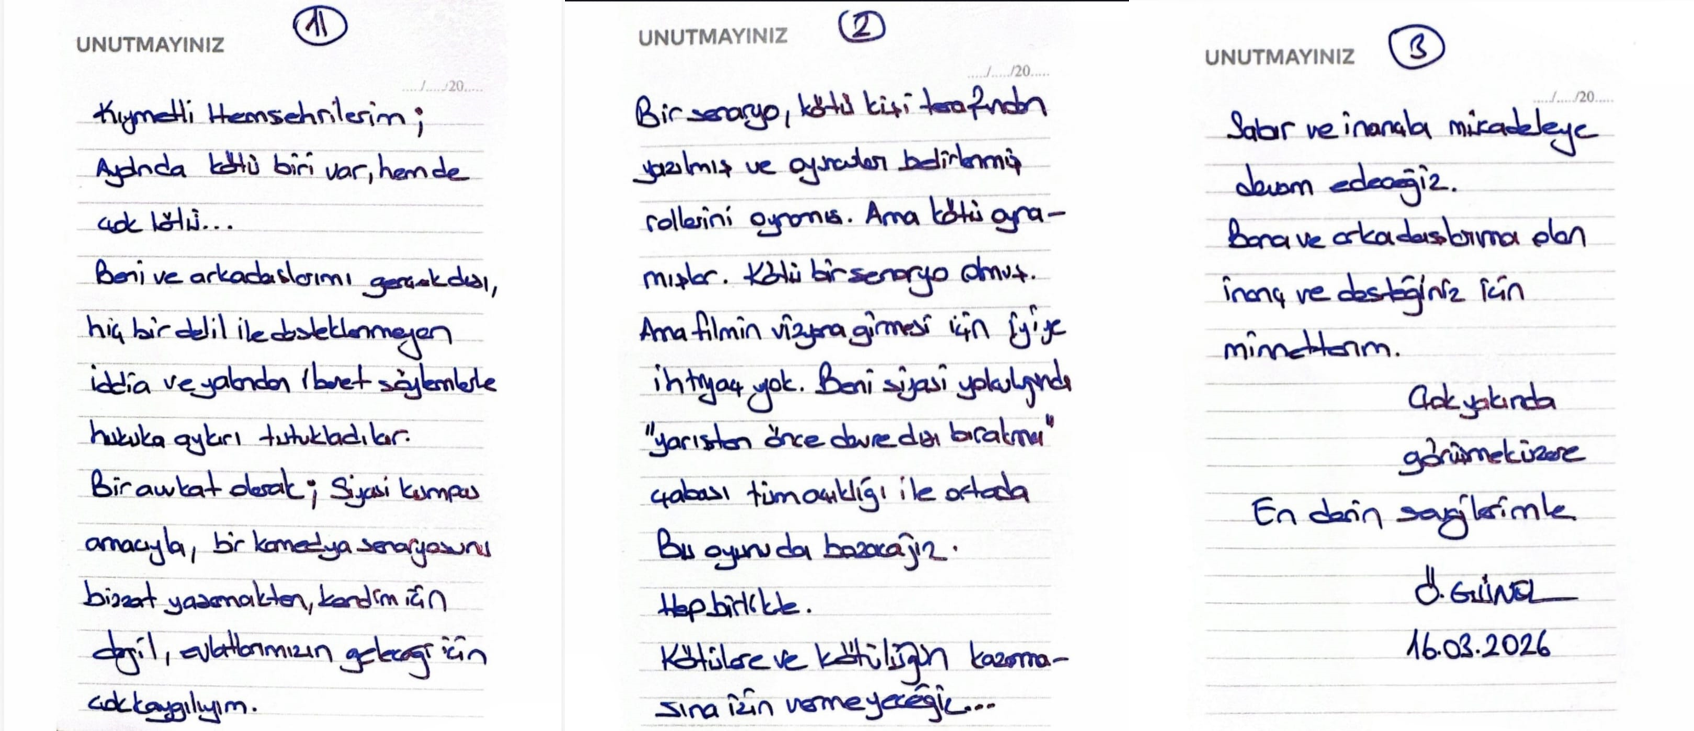 1
UNUTMAYINIZ
...../...../20.....
Kıymetli Hemşehrilerim;
Aydında kötü biri var, hemde
çok kötü...
Beni ve arkadaşlarımı gerçek dışı,
hiç bir delil ile desteklenmeyen
iddia ve yalandan ibaret söylemlerle
hukuka aykırı tutukladılar.
Bir avukat olarak; Siyasi kumpas
amacıyla, bir komedya senaryosunu
bizzat yaşamaktan, kendim için
değil, evlatlarımızın geleceği için
çok kaygılıyım.
2
UNUTMAYINIZ
...../...../20.....
Bir senaryo, kötü kişi tarafından
yazılmış ve oyuncuları belirlenmiş
rollerini oynamış. Ama kötü oyna-
mışlar. Kötü bir senaryo olmuş.
Ama filmin vizyona girmesi için iyiye
ihtiyaç yok. Beni siyasi yolculuğunda
"yarıştan önce devre dışı bırakma"
çabası tüm açıklığı ile ortada
Bu oyunu da bozacağız.
Hep birlikte.
Kötülere ve kötülüğün kazanma-
sına izin vermeyeceğiz...
3
UNUTMAYINIZ
...../...../20.....
Sabır ve inançla mücadeleye
devam edeceğiz.
Bana ve arkadaşlarıma olan
inanç ve desteğiniz için
minnettarım.
Çok yakında
görüşmek üzere
En derin sevgilerimle
Ö. GÜNEL
16.03.2026